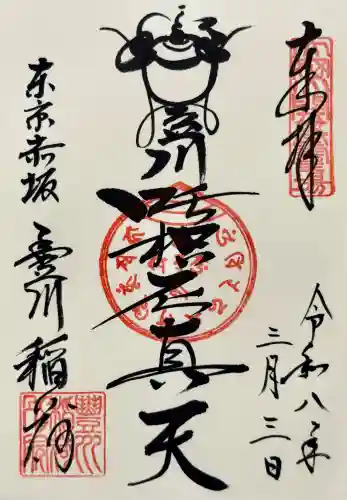 奉拝
令和八年
三月三日
豊川
吒枳尼真天
東京赤坂
豊川稲荷